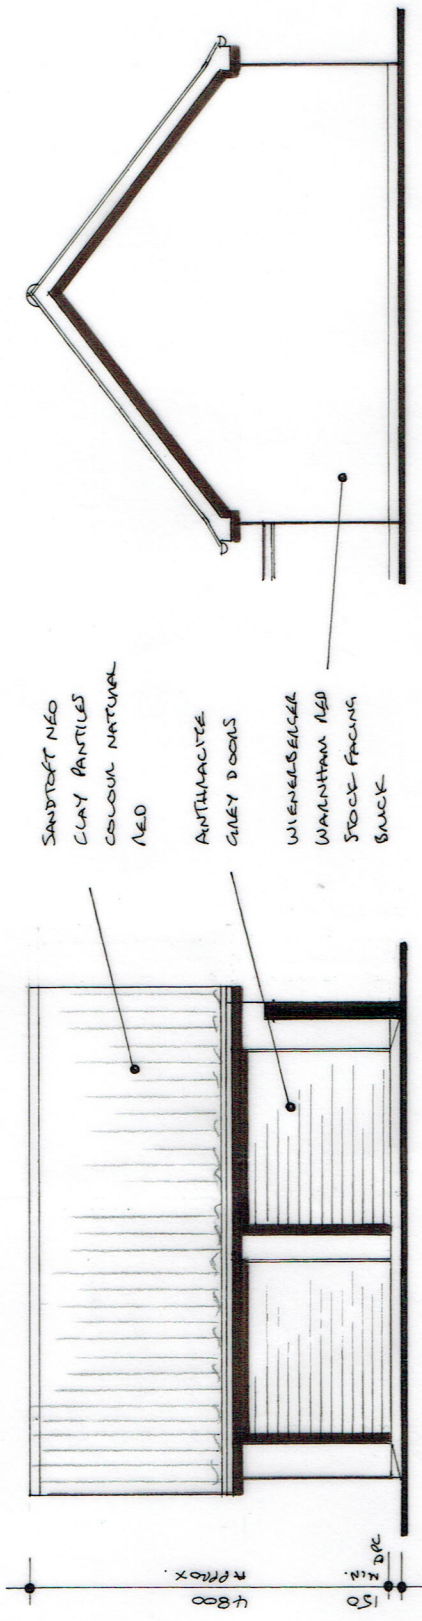 SANDTOFT NEO
CLAY PANTILES
COLOUR NATURAL
RED
ANTHRACITE
GREY DOORS
WIENERBERGER
WARNHAM RED
STOCK FACING
BRICK
4800
APPROX.
150
MIN.
DPC